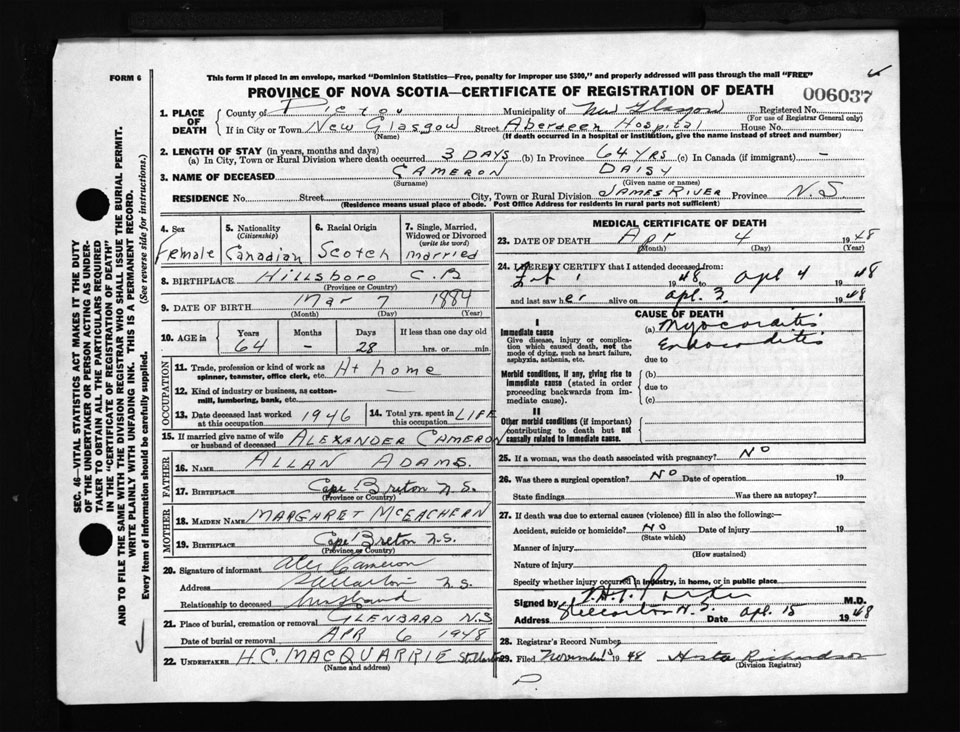 FORM 6
This form if placed in an envelope, marked "Dominion Statistics—Free, penalty for improper use $300," and properly addressed will pass through the mail "FREE"
PROVINCE OF NOVA SCOTIA—CERTIFICATE OF REGISTRATION OF DEATH
006037
1. PLACE OF DEATH
County of Pictou Municipality of New Glasgow Registered No.
(For use of Registrar General only)
If in City or Town New Glasgow Street Aberdeen Hospital House No.
(Name) (If death occurred in a hospital or institution, give the name instead of street and number)
2. LENGTH OF STAY (in years, months and days)
(a) In City, Town or Rural Division where death occurred 3 DAYS (b) In Province 64 YRS (c) In Canada (if immigrant) —
3. NAME OF DECEASED CAMERON DAISY
(Surname) (Given name or names)
RESIDENCE No. Street City, Town or Rural Division JAMES RIVER Province N.S
(Residence means usual place of abode. Post Office Address for residents in rural parts not sufficient)
4. Sex
Female
5. Nationality
(Citizenship)
Canadian
6. Racial Origin
Scotch
7. Single, Married, Widowed or Divorced
(write the word)
married
8. BIRTHPLACE Hillsboro C.B
(Province or Country)
9. DATE OF BIRTH Mar 7 1884
(Month) (Day) (Year)
10. AGE in
Years Months Days If less than one day old
64 — 28 hrs. or min.
OCCUPATION
11. Trade, profession or kind of work as spinner, teamster, office clerk, etc. At home
12. Kind of industry or business, as cotton-mill, lumbering, bank, etc. —
13. Date deceased last worked at this occupation 1946
14. Total yrs. spent in this occupation LIFE
15. If married give name of wife or husband of deceased ALEXANDER CAMERON
FATHER
16. NAME ALLAN ADAMS.
17. BIRTHPLACE Cape Breton N.S.
(Province or Country)
MOTHER
18. MAIDEN NAME MARGHRET McEACHERN
19. BIRTHPLACE Cape Breton N.S.
(Province or Country)
20. Signature of informant Alex Cameron
Address Stellarton N.S.
Relationship to deceased husband
21. Place of burial, cremation or removal GLENBARD N.S
Date of burial or removal APR 6 1948
22. UNDERTAKER H.C. MACQUARRIE Stellarton
(Name and address)
MEDICAL CERTIFICATE OF DEATH
23. DATE OF DEATH Apr 4 1948
(Month) (Day) (Year)
24. I HEREBY CERTIFY that I attended deceased from:
Feb 1 1948 to Apl 4 1948
and last saw her alive on apl. 3 1948
CAUSE OF DEATH
I
Immediate cause
Give disease, injury or complication which caused death, not the mode of dying, such as heart failure, asphyxia, asthenia, etc.
(a) Myocarditis
Endocarditis
due to
Morbid conditions, if any, giving rise to immediate cause (stated in order proceeding backwards from immediate cause).
(b)
due to
(c)
II
Other morbid conditions (if important) contributing to death but not causally related to immediate cause.
25. If a woman, was the death associated with pregnancy? NO
26. Was there a surgical operation? NO Date of operation 19
State findings Was there an autopsy?
27. If death was due to external causes (violence) fill in also the following:—
Accident, suicide or homicide? NO Date of injury 19
(State which)
Manner of injury
(How sustained)
Nature of injury
Specify whether injury occurred in industry, in home, or in public place
Signed by M.D.
Address Stellarton N.S. Date apl. 15 1948
28. Registrar's Record Number
29. Filed November 15 1948 Richardson
(Division Registrar)
SEC. 46—VITAL STATISTICS ACT MAKES IT THE DUTY
OF THE UNDERTAKER OR PERSON ACTING AS UNDER-
TAKER TO OBTAIN ALL THE PARTICULARS REQUIRED
IN THE "CERTIFICATE OF REGISTRATION OF DEATH"
AND TO FILE THE SAME WITH THE DIVISION REGISTRAR WHO SHALL ISSUE THE BURIAL PERMIT.
WRITE PLAINLY WITH UNFADING INK. THIS IS A PERMANENT RECORD.
Every item of information should be carefully supplied. (See reverse side for instructions.)